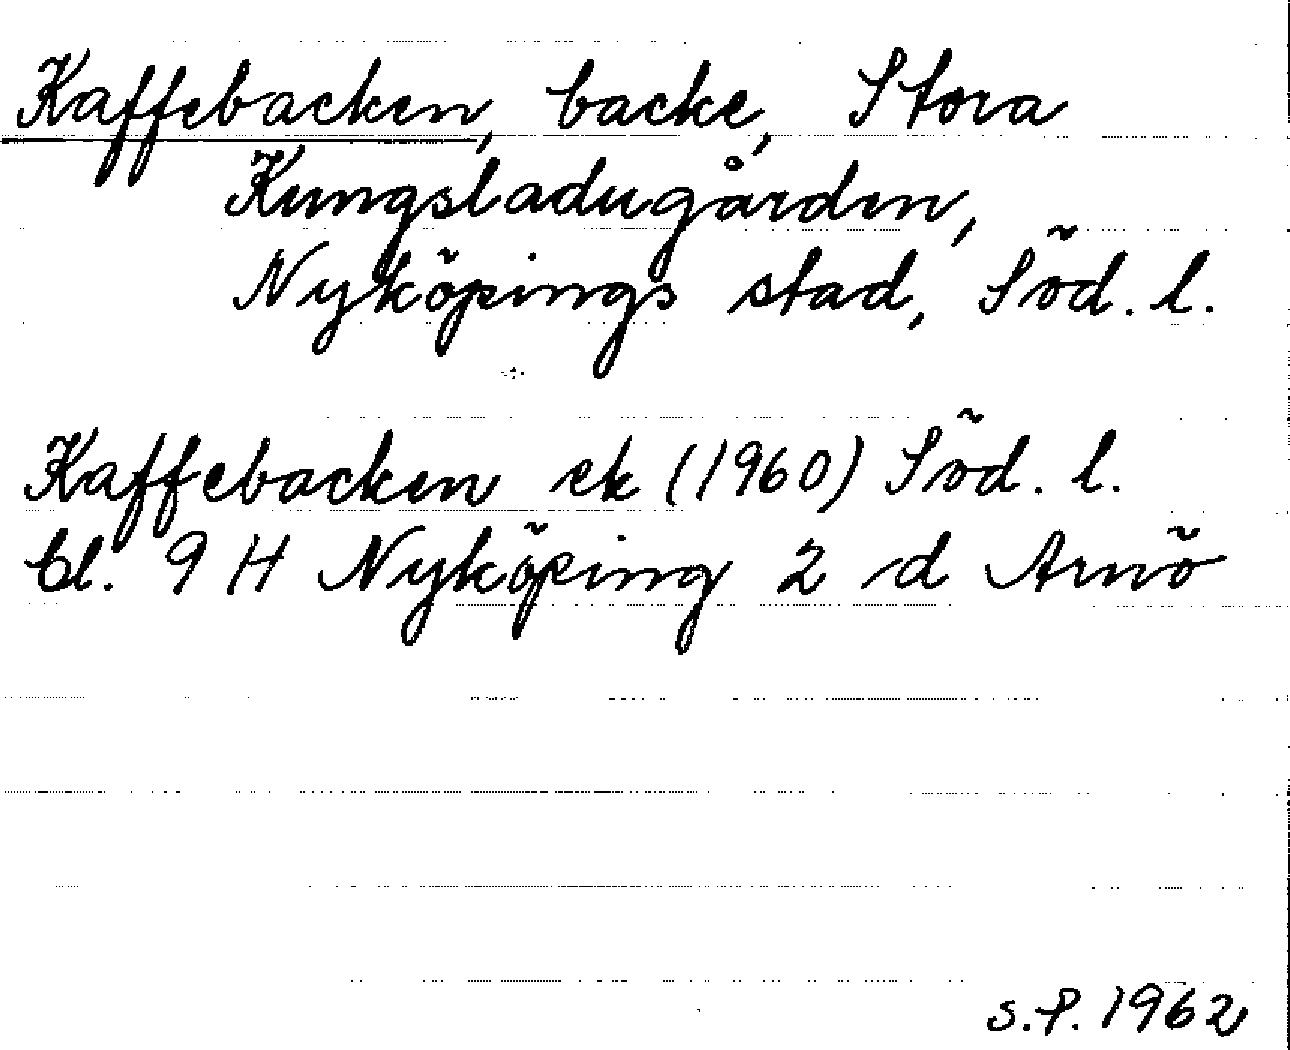 Kaffebacken, backe, Stora
Kungsladugården,
Nyköpings stad, Söd. l.
Kaffebacken ek (1960) Söd. l.
bl. 9 H Nyköping 2 d Arnö
S.P. 1962